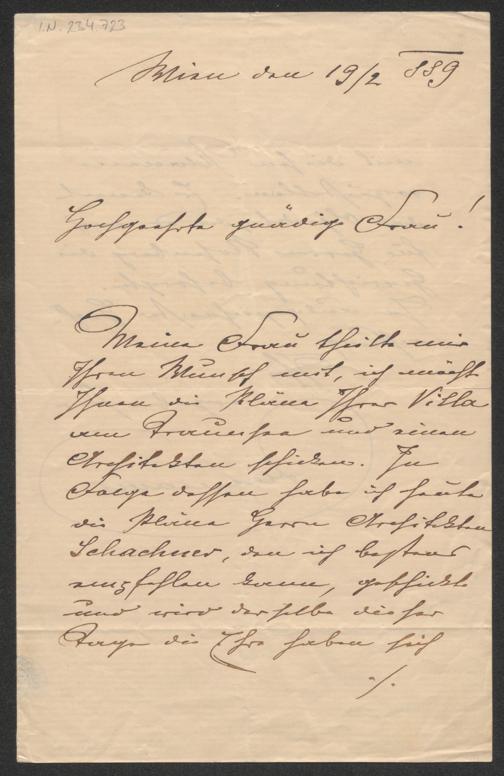 I.N. 234.723
Wien den 19/2 889
Hochgeehrte gnädige Frau!
Meine Frau theilte mir
Ihren Wunsch mit, ich möcht
Ihnen die Pläne Ihrer Villa
am Traunsee und einen
Architekten schicken. In
Folge dessen habe ich heute
die Pläne Herrn Architekten
Schachner, den ich bestens
empfehlen kann, geschickt
und wird derselbe dieser
Tage die Ehre haben sich
./.